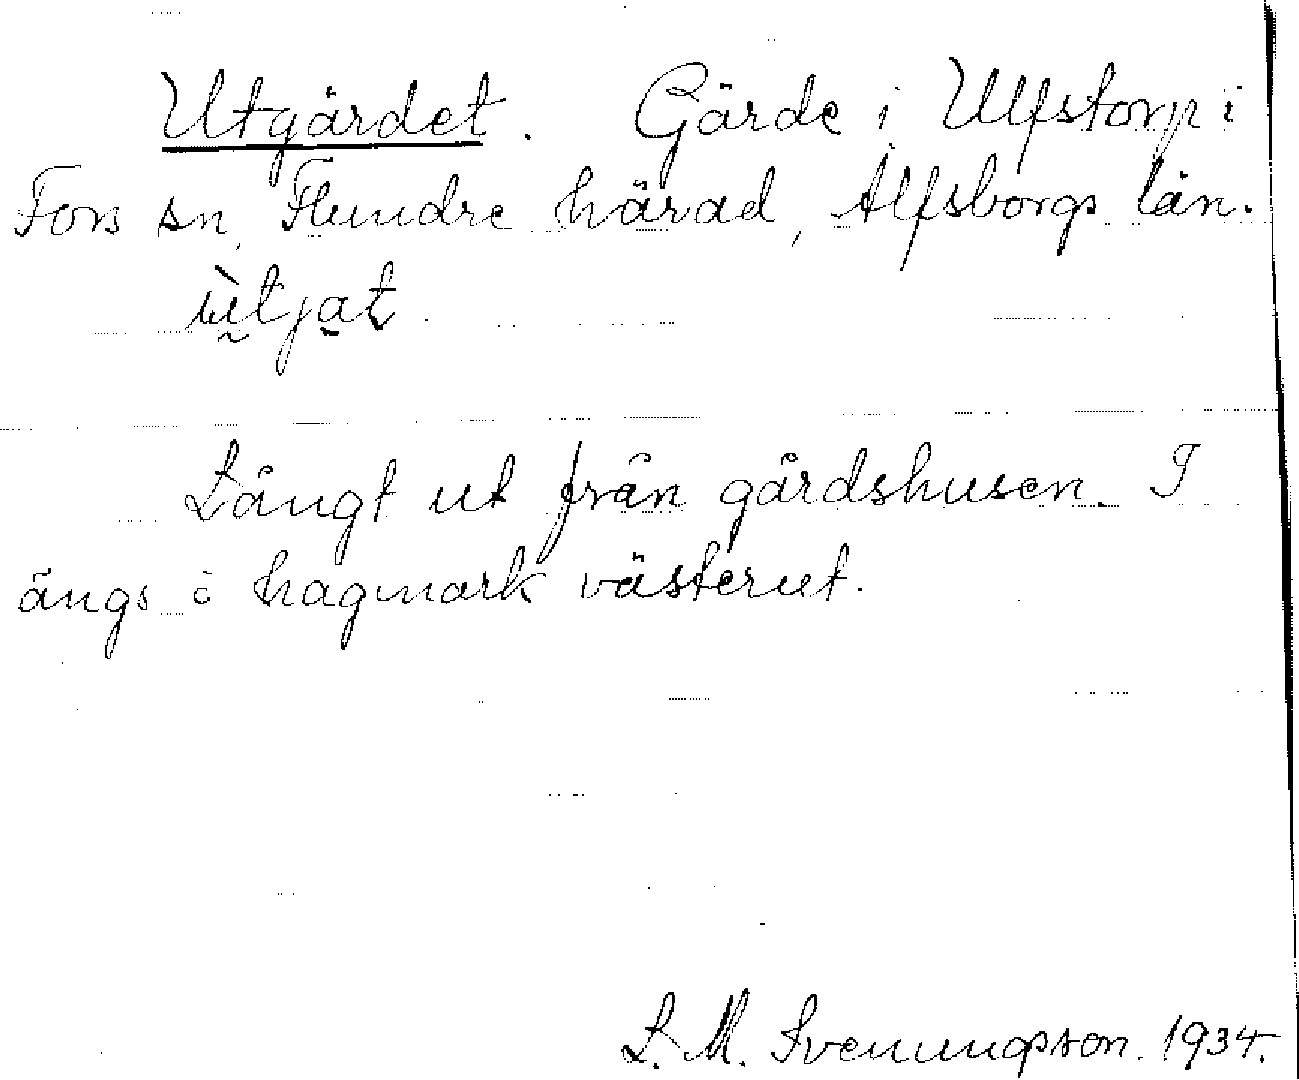 Utgärdet. Gärde i Ulfstorp i
Fors sn, Flundre härad, Älfsborgs län.
ùtjat.
Långt ut från gårdshusen. I
ängs å hagmark västerut.
L. M. Svenungsson. 1934.